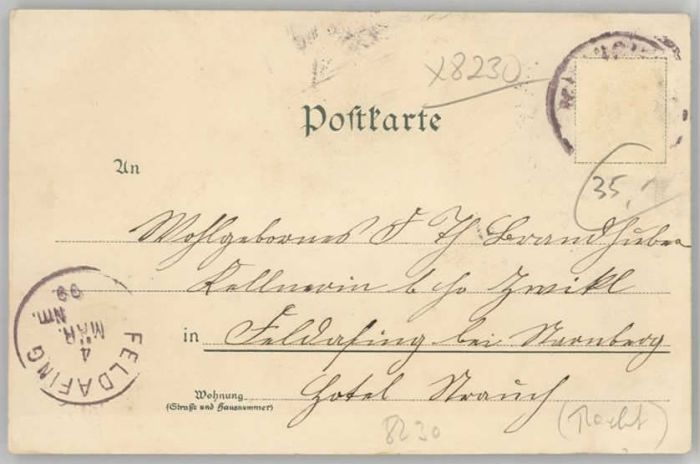 x8230
Postkarte
An
35,-
Wohlgebornes F Th Brandhuber
Kellnerin b H Zwikl
in Feldafing bei Starnberg
Wohnung
(Straße und Hausnummer)
Hotel Strauch
FELDAFING
4
MAR.
Nm.
99
8230